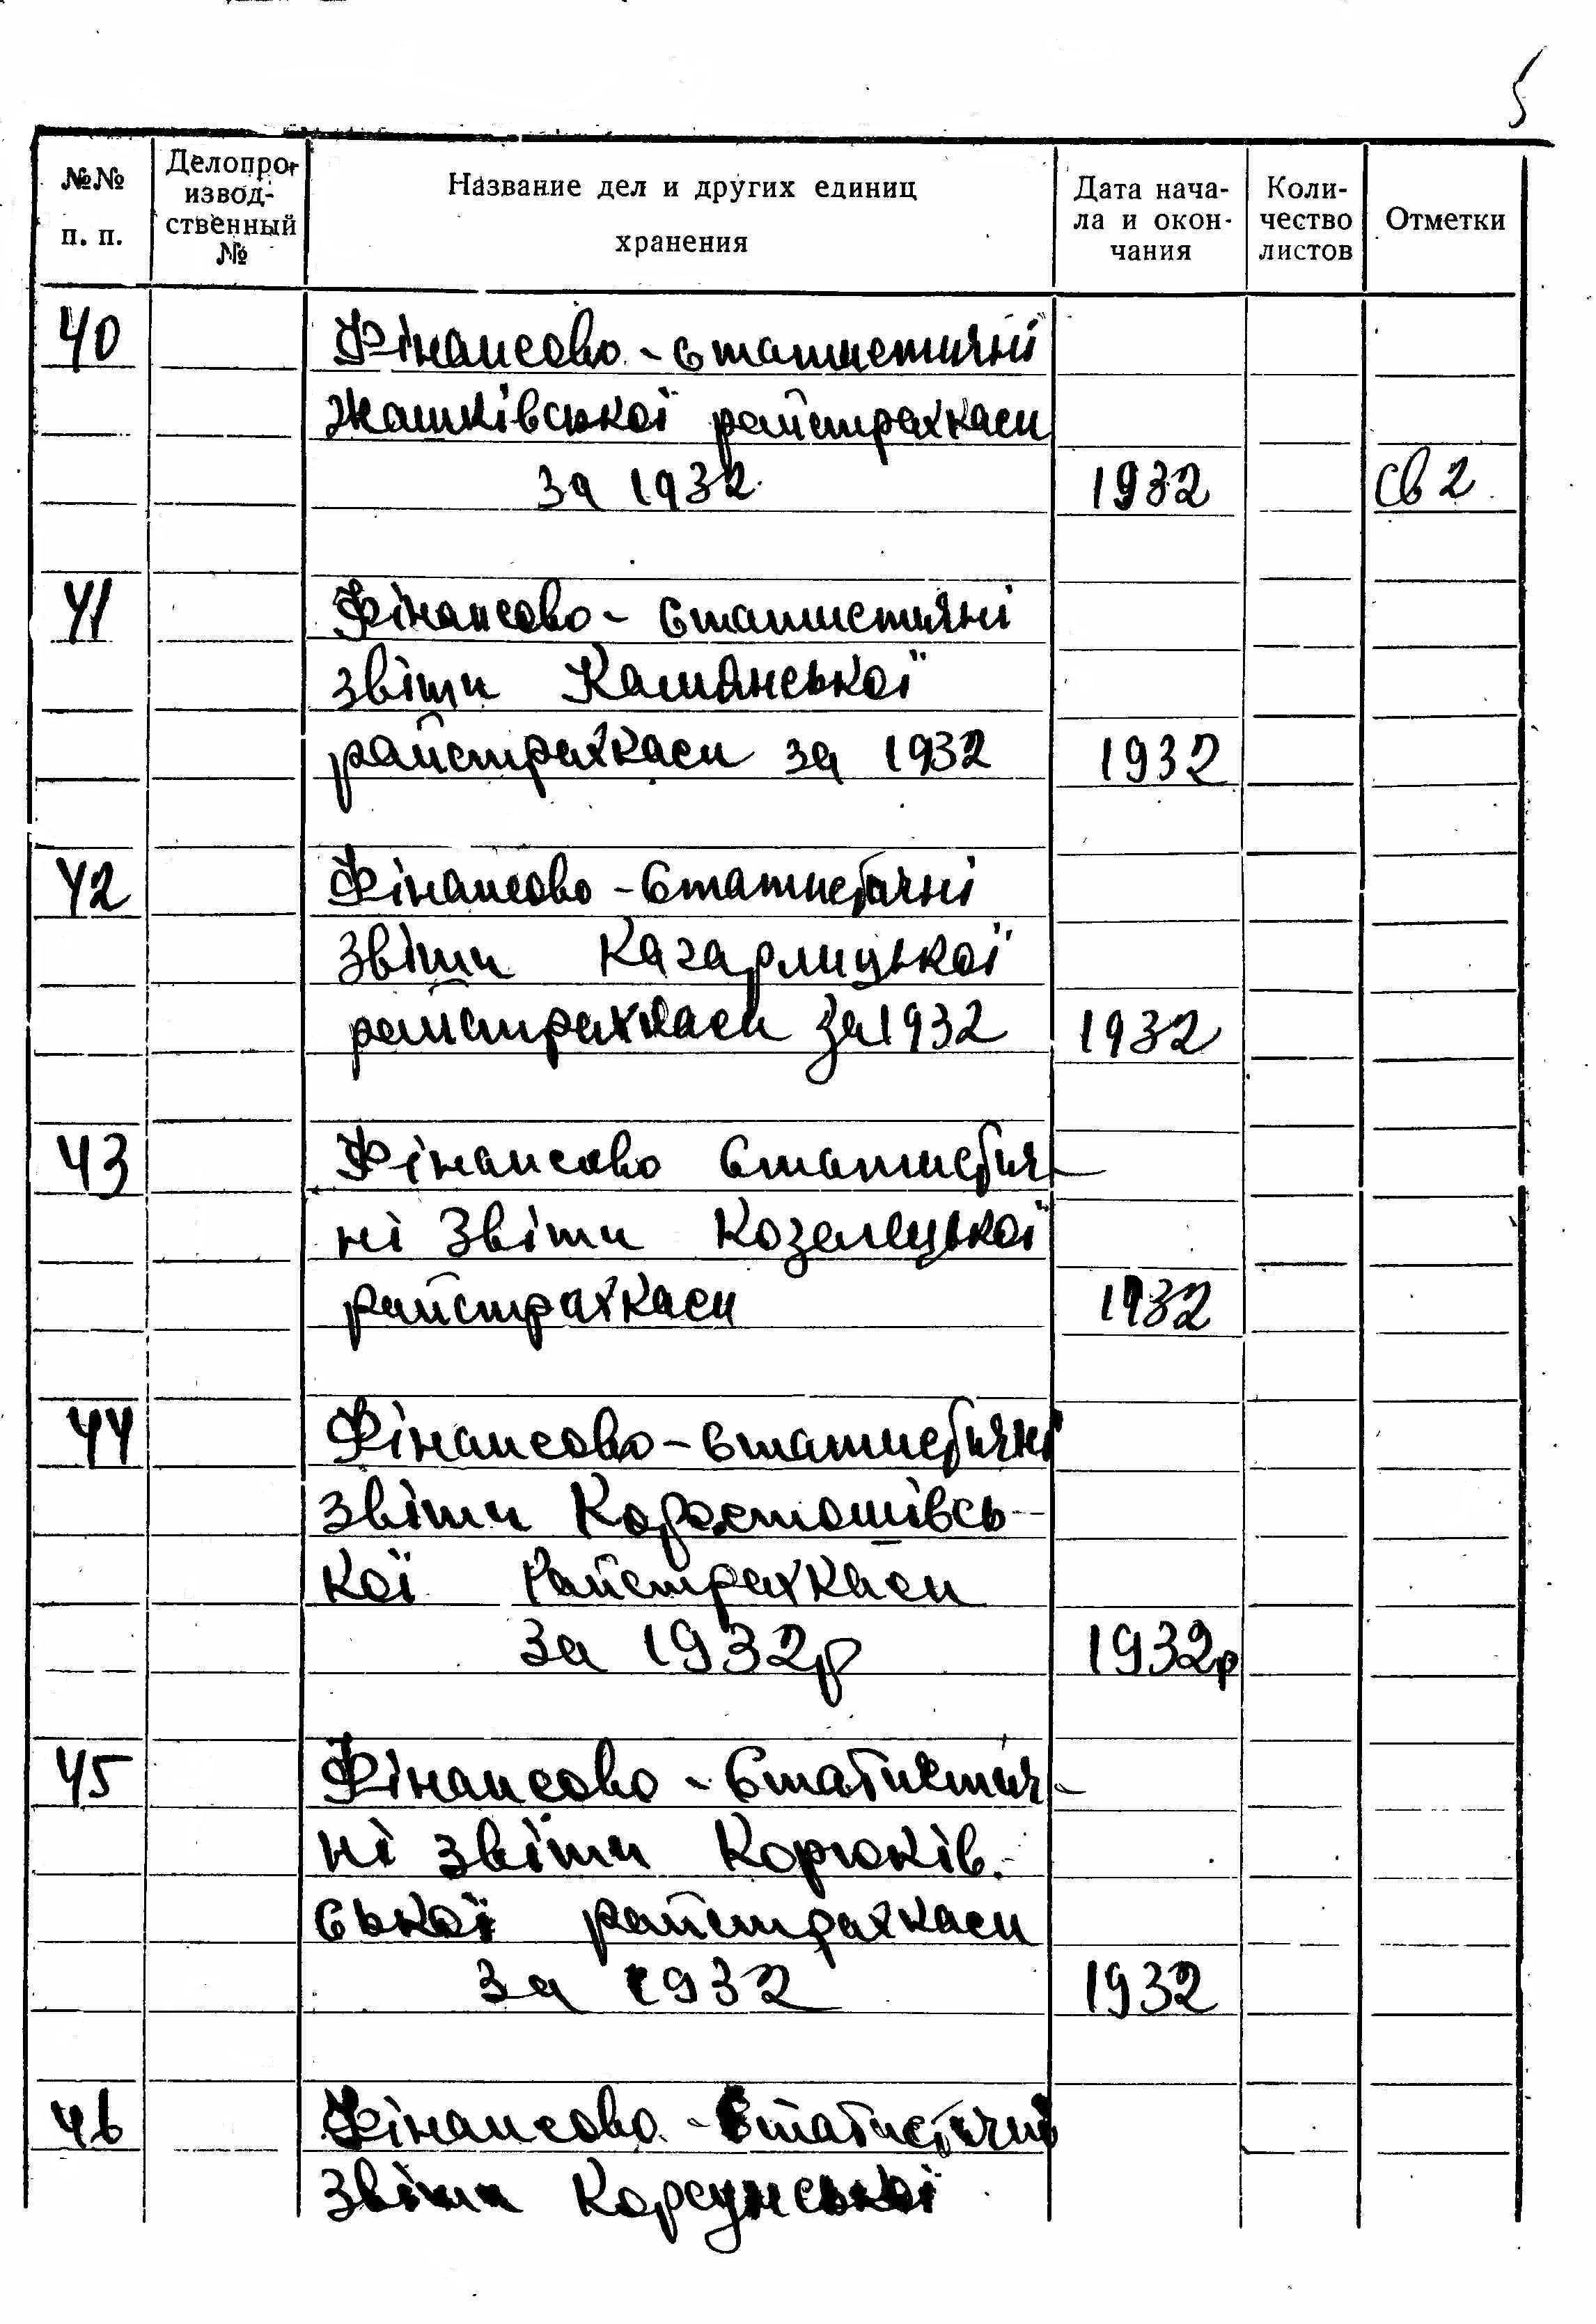 5
№№ п. п.
Делопроизводственный №
Название дел и других единиц хранения
Дата начала и окончания
Количество листов
Отметки
40 Фінансово-статистичні
Жашківської райстрахкаси
за 1932 1932 св 2
41 Фінансово-статистичні
звіти Кам'янської
райстрахкаси за 1932 1932
42 Фінансово-статистичні
звіти Кагарлицької
райстрахкаси за 1932 1932
43 Фінансово статистич-
ні звіти Козелецької
райстрахкаси 1932
44 Фінансово-статистичні
звіти Коростошівсь-
кої Райстрахкаси
за 1932р 1932р
45 Фінансово-статистич-
ні звіти Корюків-
ської райстрахкаси
за 1932 1932
46 Фінансово-статистичні
звіти Корсунської